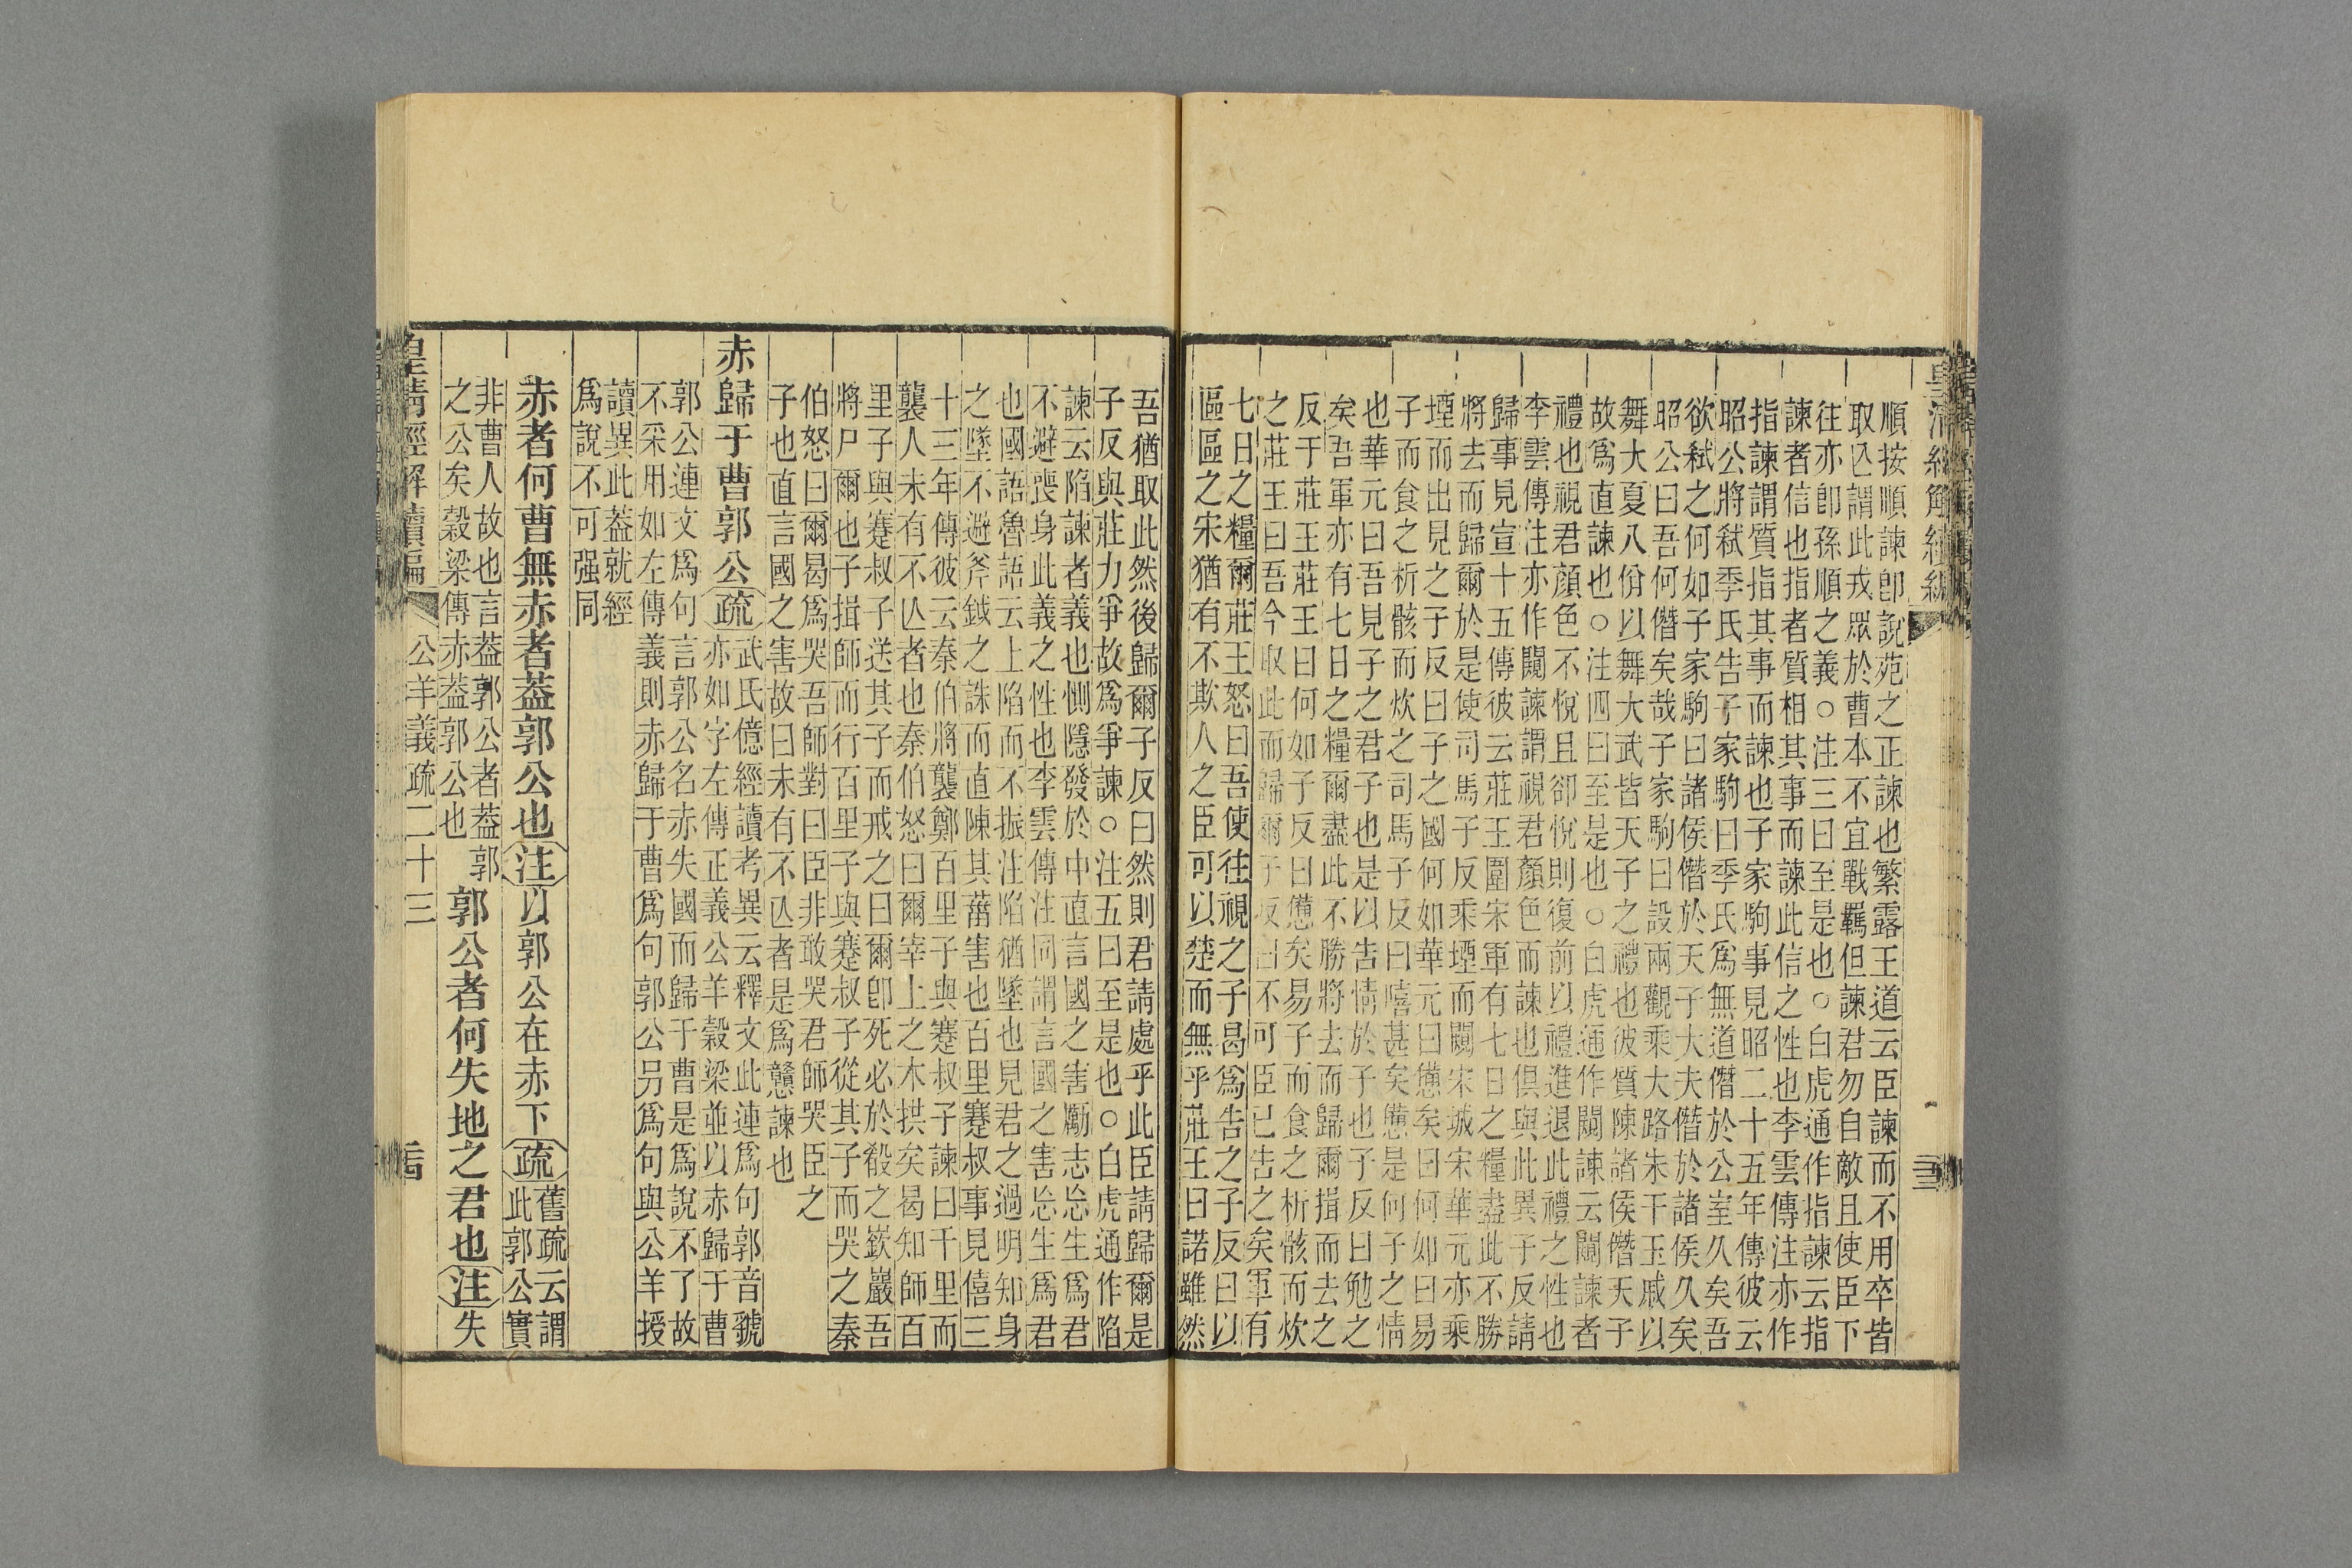 順按順諫卽說苑之正諫也繁露王道云臣諫而不用卒皆
取亾謂此戎眾於曹本不宜戰羈但諫君勿自敵且使臣下
往亦卽孫順之義○注三曰至是也○白虎通作指諫云指
諫者信也指者質相其事而諫此信之性也李雲傳注亦作
指諫謂質指其事而諫也子家駒事見昭二十五年傳彼云
昭公將弒季氏告子家駒曰季氏爲無道僭於公室久矣吾
欲弒之何如子家駒曰諸侯僭於天子大夫僭於諸侯久矣
昭公曰吾何僭矣哉子家駒曰設兩觀乘大路朱干玉戚以
舞大夏八佾以舞大武皆天子之禮也彼質陳諸侯僭天子
故爲直諫也○注四曰至是也○白虎通作闚諫云闚諫者
禮也視君顏色不悅且卻悅則復前以禮進退此禮之性也
李雲傳注亦作闚諫謂視君顏色而諫也俱與此異子反請
歸事見宣十五傳彼云莊王圍宋軍有七日之糧盡此不勝
將去而歸爾於是使司馬子反乘堙而闚宋城宋華元亦乘
堙而出見之子反曰子之國何如華元曰憊矣曰何如曰易
子而食之析骸而炊之司馬子反曰嘻甚矣憊是何子之情
也華元曰吾見子之君子也是以告情於子也子反曰勉之
矣吾軍亦有七日之糧爾盡此不勝將去而歸爾揖而去之
反于莊王莊王曰何如子反曰憊矣易子而食之析骸而炊
之莊王曰吾今取此而歸爾子反曰不可臣已告之矣軍有
七日之糧爾莊王怒曰吾使往視之子曷爲告之子反曰以
區區之宋猶有不欺人之臣可以楚而無乎莊王曰諾雖然
吾猶取此然後歸爾子反曰然則君請處乎此臣請歸爾是
子反與莊力爭故爲爭諫○注五曰至是也○白虎通作陷
諫云陷諫者義也惻隱發於中直言國之害勵志忘生爲君
不避喪身此義之性也李雲傳注同謂言國之害忘生爲君
也國語魯語云上陷而不振注陷猶墜也見君之過明知身
之墜不避斧鉞之誅而直陳其菑害也百里蹇叔事見僖三
十三年傳彼云秦伯將襲鄭百里子與蹇叔子諫曰千里而
襲人未有不亾者也秦伯怒曰爾宰上之木拱矣曷知師百
里子與蹇叔子送其子而戒之曰爾卽死必於殽之嶔巖吾
將尸爾也子揖師而行百里子與蹇叔子從其子而哭之秦
伯怒曰爾曷爲哭吾師對曰臣非敢哭君師哭臣之
子也直言國之害故曰未有不亾者是爲戇諫也
赤歸于曹郭公疏
武氏億經讀考異云釋文此連爲句郭音虢
亦如字左傳正義公羊穀梁並以赤歸于曹
郭公連文爲句言郭公名赤失國而歸于曹是爲說不了故
不采用如左傳義則赤歸于曹爲句郭公另爲句與公羊授
讀異此葢就經
爲說不可强同
赤者何曹無赤者葢郭公也注以郭公在赤下疏
舊疏云謂
此郭公實
非曹人故也言葢郭公者葢郭
之公矣穀梁傳赤葢郭公也
郭公者何失地之君也注失
皇清經解續編 公羊義疏二十三